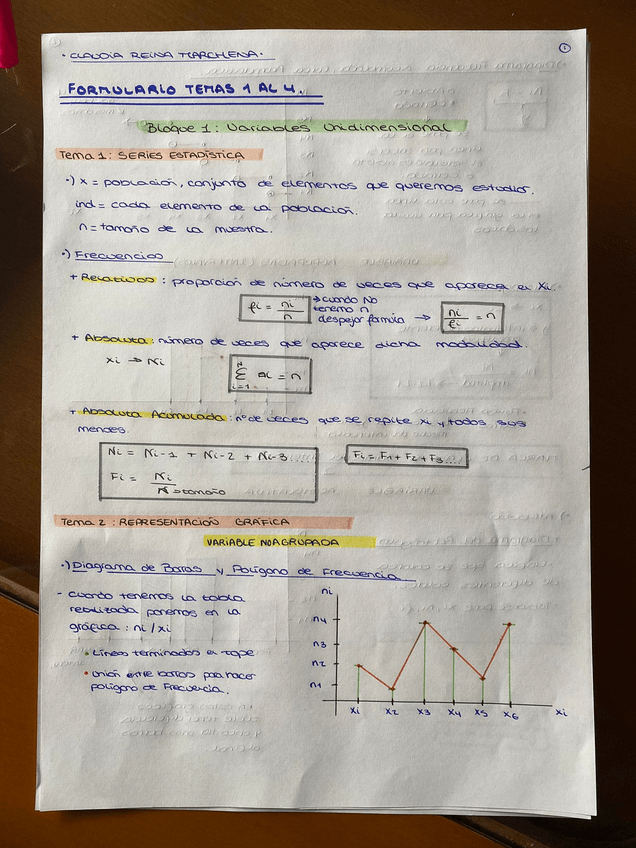 · CLAUDIA REINA MARCHENA ·
1
FORMULARIO TEMAS 1 AL 4.
Bloque 1: Variables Unidimensional
Tema 1: SERIES ESTADÍSTICA
·) X = población, conjunto de elementos que queremos estudiar.
ind = cada elemento de la población.
n = tamaño de la muestra.
·) Frecuencias
+ Relativas: proporción de número de veces que aparece el Xi.
fi = ni / n
→ cuando NO
tenemos n
despejar fórmula → ni / fi = n
+ Absoluta: número de veces que aparece dicha modalidad.
xi → Ni
N Σ i=1 ni = n
+ Absoluta Acumulada: nº de veces que se repite xi y todos sus
menores.
Ni = Ni-1 + Ni-2 + Ni-3...
Fi = F1 + F2 + F3...
Fi = Ni / N → tamaño
Tema 2: REPRESENTACIÓN GRÁFICA
VARIABLE NO AGRUPADA
·) Diagrama de Barras y Polígono de Frecuencia
- cuando tenemos la tabla
realizada ponemos en la
gráfica: ni / xi
• Líneas terminadas en tope
• Unión entre barras para hacer
polígono de Frecuencia.
ni
n4
n3
n2
n1
xi x2 x3 x4 x5 x6 xi